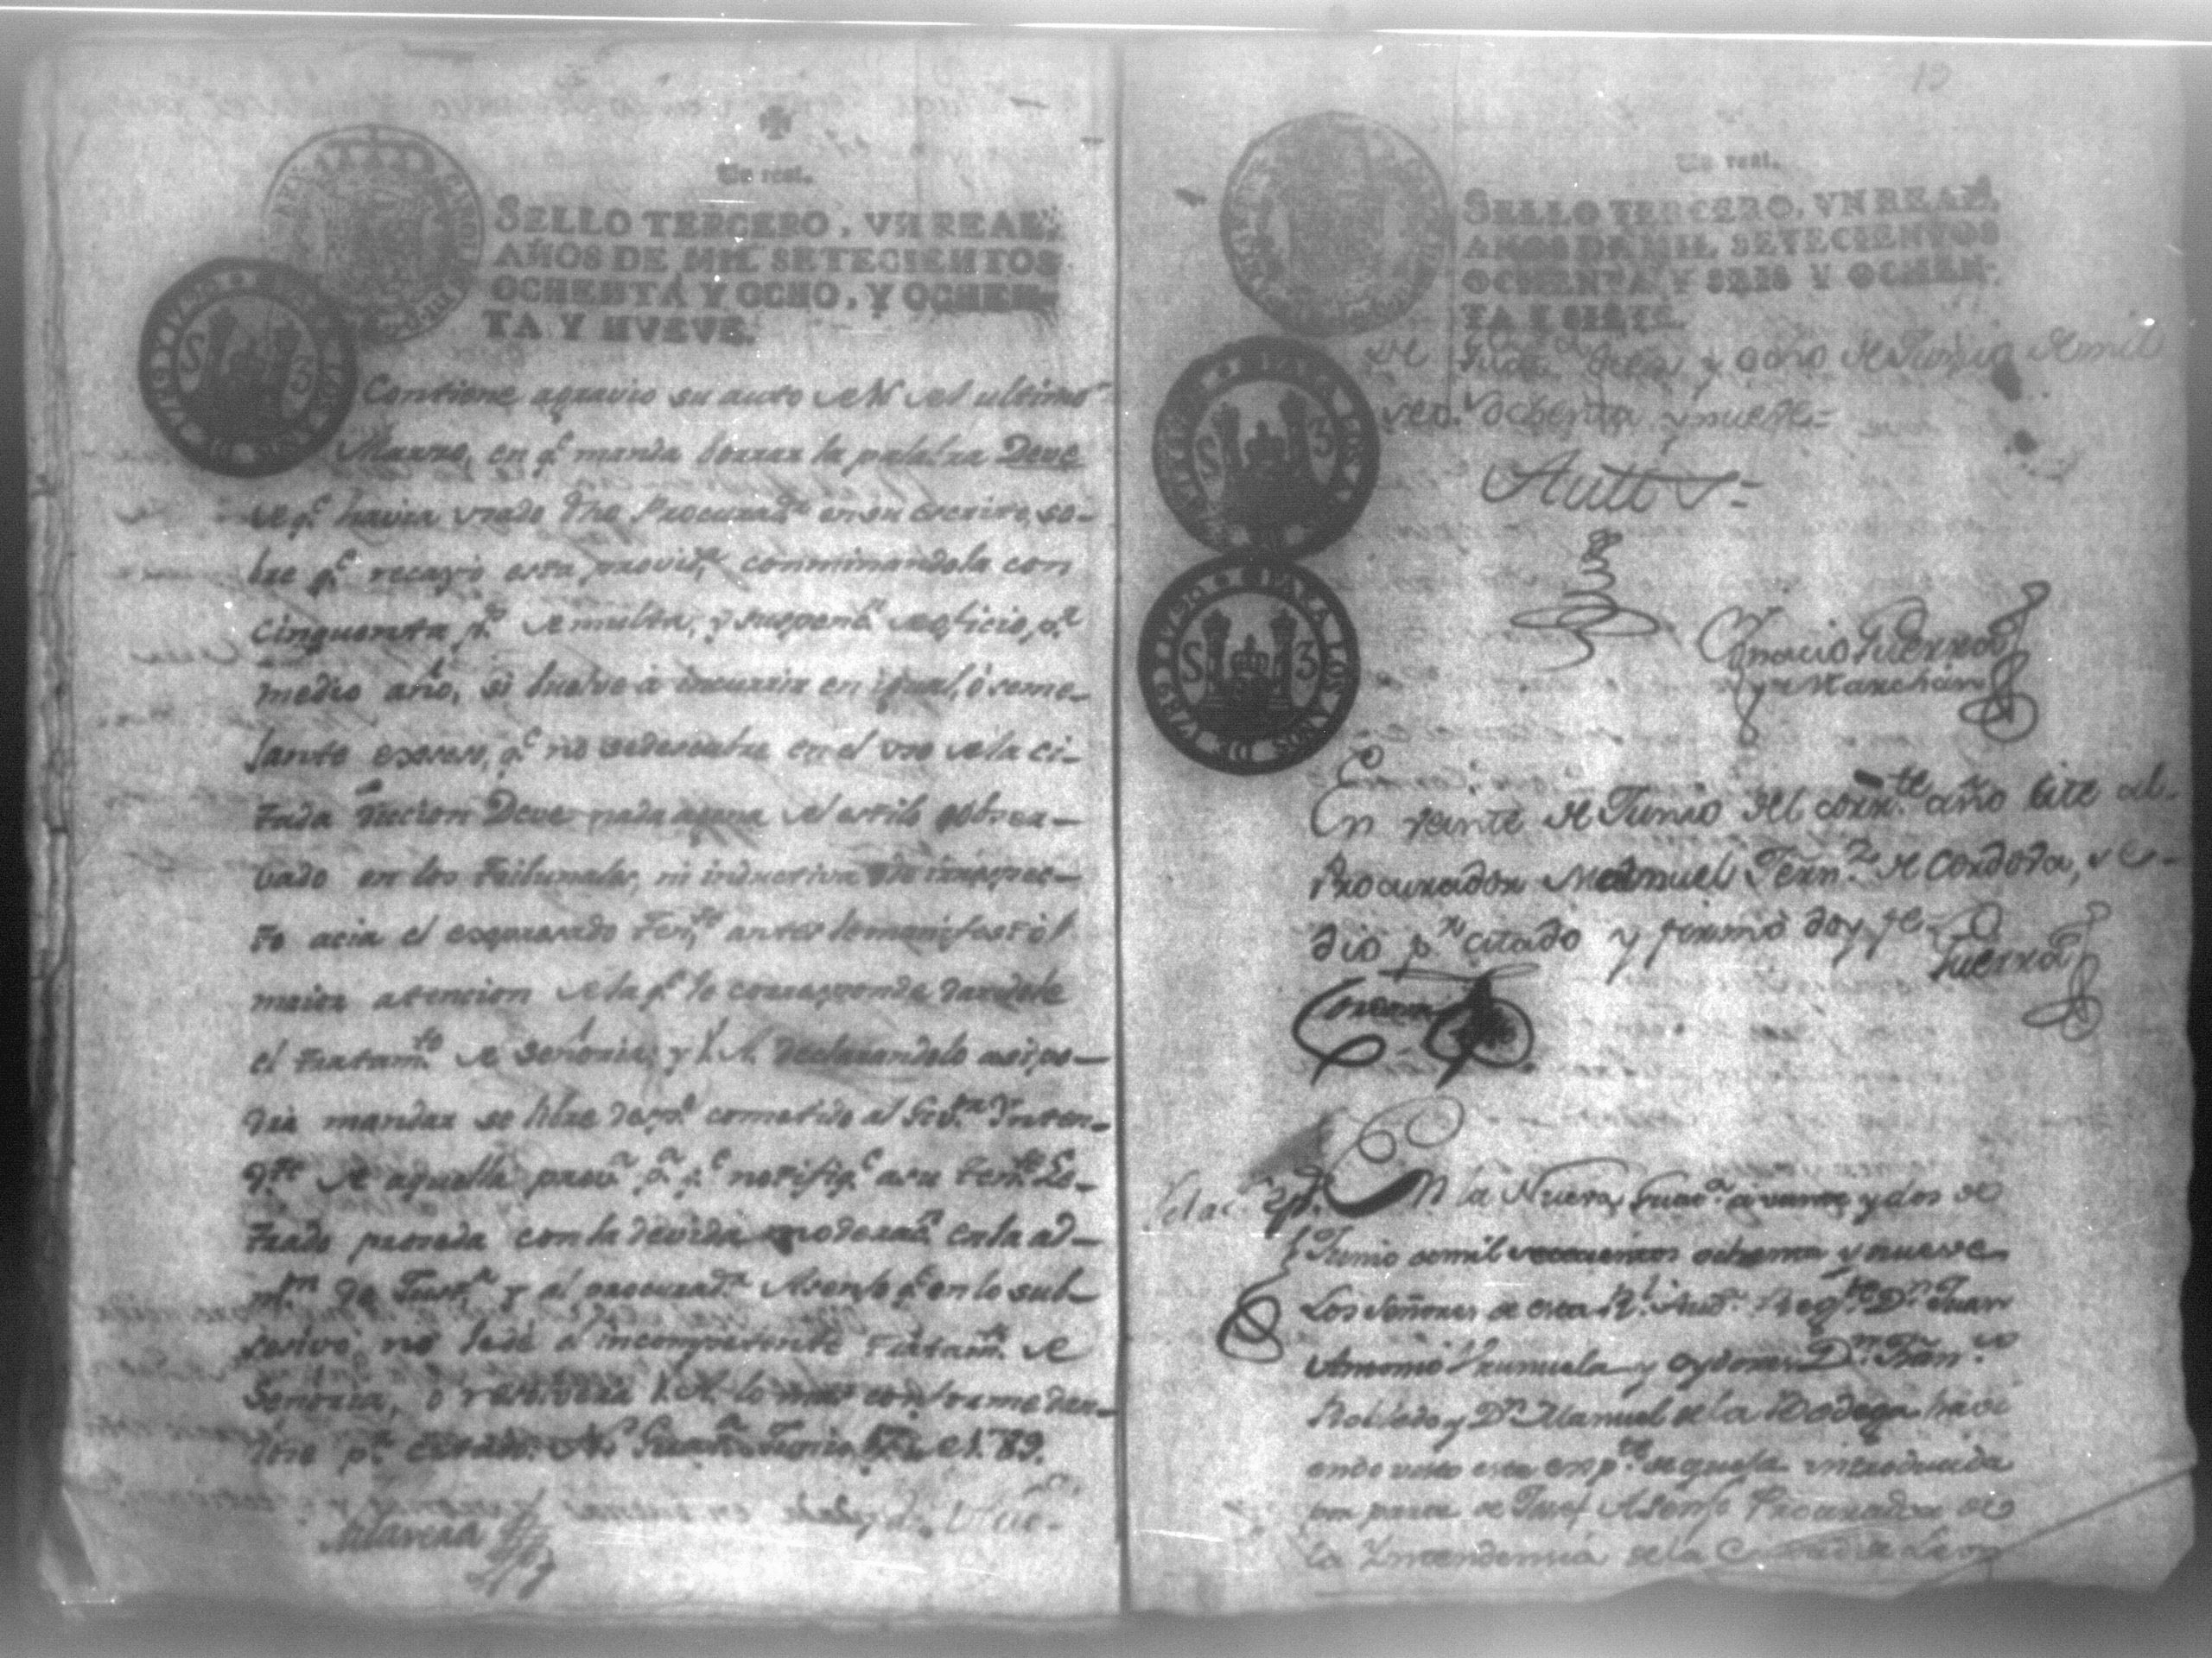 Un real.
SELLO TERCERO, VN REAL
AÑOS DE MIL SETECIENTOS
OCHENTA Y OCHO, Y OCHEN-
TA Y NUEVE.
Contiene agravio su auto de del ultimo
Marzo, en q.e manda borrar la palabra Deve
de q.e havia usado dho Procurad.r en su escrito, so-
bre q.e recayó esta provid.a conminandola con
cinquenta p.s de multa, y suspenc.n de oficio p.r
medio año, si buelve á incurrir en igual, ó seme-
jante exceso, q.e no se descubre en el uso de la ci-
tada diccion Deve nada agena del estilo obser-
vado en los Tribunales, ni inductiva de irrespec-
to acia el expresado Ten.te antes le manifestó l
maior atencion de la q.e le corresponde dandole
el tratam.to de señoria; y V.A. declarandolo asi po-
dra mandar se libre desp.o cometido al Gov.or Ynten-
d.te de aquella prov.a p.a q.e notifiq.e a su Ten.te Le-
trado proceda con la devida moderac.n en la ad-
m.on de Just.a y al procurad.r Asenjo q.e en lo sub-
cesivo no le dé el incompetente tratam.to de
Señoria, ó resolvera V.A. lo mas conforme dan-
dose p.r citado. N.a Guat.a Junio de 1789.
Un real.
SELLO TERCERO, VN REAL,
AÑOS DE MIL SETECIENTOS
OCHENTA Y SEIS Y OCHEN-
TA Y SIETE.
de Guat.a diez y ocho de Junio de mil
set.s ochenta y nueve=
Autt
Ignacio Guerra
y Marchán
En veinte de Junio del corr.te año cité al
Procurador Manuel Fern.z de Cordova, se
dio p.r citado y firmó doy fe
Guerra
Cordova
En la Nueva Guat.a a veinte y dos de
Junio de mil setecientos ochenta y nueve
Los Señores de esta R.l Aud.a Reg.te D.n Juan
Antonio Uruñuela y oydores D.n Fran.co
Robledo y D.n Manuel de la Bodega havi
endo visto este exp.te de queja introducida
por parte de Jose Asenjo Procurador de
la Yntendencia de la Ciudad de Leon